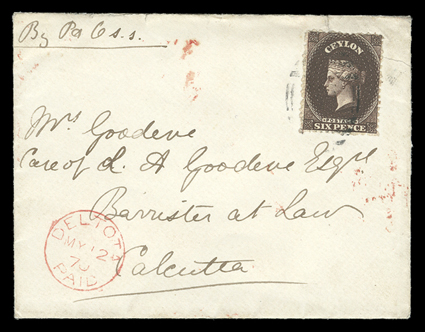 By P & O s.s.
CEYLON
POSTAGE
SIX PENCE
Mrs Goodeve
Care of L. A Goodeve Esqre
Barrister at Law
Calcutta
DELTOTA
MY 12
70
PAID